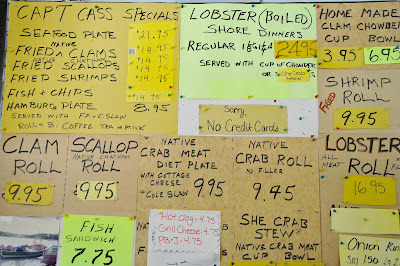 CAP'T CASS SPECIALS
SEAFOOD PLATE 21.95
NATIVE
FRIED CLAMS
NATIVE CHATHAM
FRIED SCALLOPS
FRIED SHRIMPS 14.95
FISH & CHIPS 14.95
HAMBURG PLATE 8.95
SERVED WITH F.F. C. SLAW
ROLL & B. COFFEE TEA MILK
LOBSTER (BOILED)
SHORE DINNERS
REGULAR 24.95
SERVED WITH CUP OF CHOWDER
OR She Crab
Sorry,
No Credit Cards
HOME MADE
CLAM CHOWDER
CUP BOWL
3.95 6.95
SHRIMP
ROLL
FRIED
9.95
CLAM
ROLL
9.95
SCALLOP
NATIVE CHATHAM
ROLL
9.95
NATIVE
CRAB MEAT
DIET PLATE
WITH COTTAGE
CHEESE
& COLE SLAW 9.95
NATIVE
CRAB ROLL
NO FILLER
9.45
LOBSTER
ALL MEAT ROLL
16.95
FISH
SANDWICH
7.75
Hot dog - 4.75
Grill Cheese - 4.75
PB-J - 4.75
SHE CRAB
STEW
NATIVE CRAB MEAT
CUP BOWL
Onion